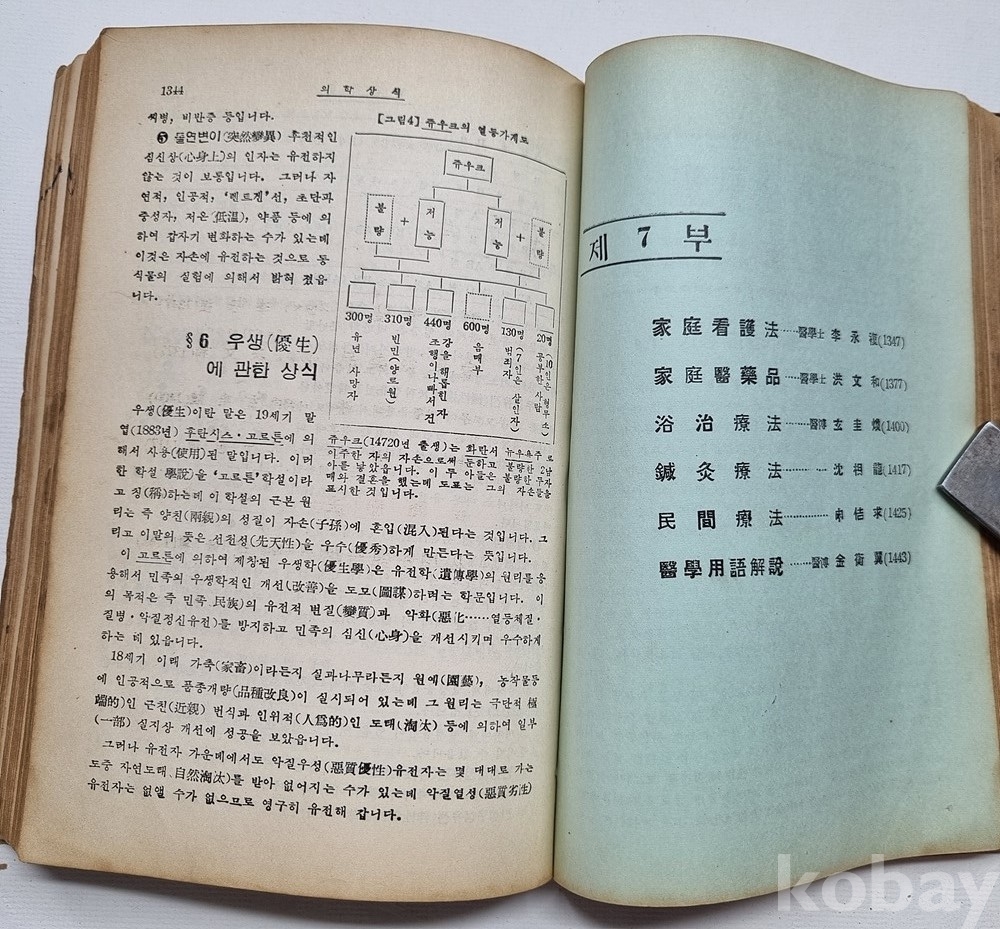 1344
의 학 상 식
찌병, 비만증 등입니다.
❺ 돌연변이(突然變異) 후천적인
심신상(心身上)의 인자는 유전하지
않는 것이 보통입니다. 그러나 자
연적, 인공적, ‘렌트겐’선, 초단파
중성자, 저온(低温), 약품 등에 의
하여 갑자기 변화하는 수가 있는데
이것은 자손에 유전하는 것으로 동
식물의 실험에 의해서 밝혀 졌읍
니다.
§6 우생(優生)
에 관한 상식
우생(優生)이란 말은 19세기 말
엽(1883년) 후란시스・고르튼에 의
해서 사용(使用)된 말입니다. 이러
한 학설(學說)을 ‘고르튼’학설이라
고 칭(稱)하는데 이 학설의 근본 원
[그림4] 쥬우크의 열등가계도
쥬우크
불량 + 저능
저능 + 불량
300명 310명 440명 600명 130명 20명
유년 사망자
빈민(양로원)
조행이나빠서 건
강을 해롭힌 자
음매부
범죄자
(7인은 살인자)
공부한 사람
쥬우크(14720년 출생)는 화란서 뉴우욕주로
이주한 자의 자손으로써 둔하고 불량한 2남
아를 낳았읍니다. 이 두 아들은 불량한 두자
매와 결혼을 했는데 도표는 그의 자손들을
표시한 것입니다.
리는 즉 양친(兩親)의 성질이 자손(子孫)에 혼입(混入)된다는 것입니다. 그
리고 이말의 뜻은 선천성(先天性)을 우수(優秀)하게 만든다는 뜻입니다.
이 고르튼에 의하여 제창된 우생학(優生學)은 유전학(遺傳學)의 원리를 응
용해서 민족의 우생학적인 개선(改善)을 도모(圖謀)하려는 학문입니다. 이
의 목적은 즉 민족(民族)의 유전적 변질(變質)과 악화(惡化……열등체질・
질병・악질정신유전)를 방지하고 민족의 심신(心身)을 개선시키며 우수하게
하는 데 있읍니다.
18세기 이래 가축(家畜)이라든지 실과나무라든지 원예(園藝), 농작물등
에 인공적으로 품종개량(品種改良)이 실시되어 있는데 그 원리는 극단적(極
端的)인 근친(近親) 번식과 인위적(人爲的)인 도태(淘汰) 등에 의하여 일부
(一部) 실지상 개선에 성공을 보았읍니다.
그러나 유전자 가운데에서도 악질우성(惡質優性)유전자는 몇 대대로 가는
도중 자연도태(自然淘汰)를 받아 없어지는 수가 있는데 악질열성(惡質劣性)
유전자는 없앨 수가 없으므로 영구히 유전해 갑니다.
제 7 부
家庭看護法……醫學士 李永 (1347)
家庭醫藥品……醫學士 洪文和(1377)
浴治療法……醫博 玄圭 (1400)
鍼灸療法……沈祖 (1417)
民間療法…… 求(1425)
醫學用語解說……醫博 金衡翼(1443)
kobay